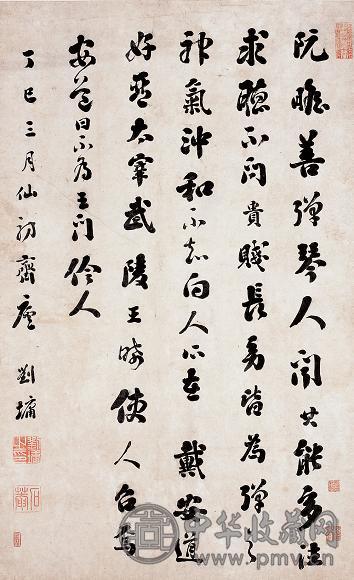 阮瞻善彈琴人聞其能多往
求聽不問貴賤長幼皆為彈之
神氣沖和不知向人所在 戴安道
好琴太宰武陵王晞使人召焉
安道曰不為王門伶人
丁巳三月仙舫齋 劉墉
石菴
中华收藏网